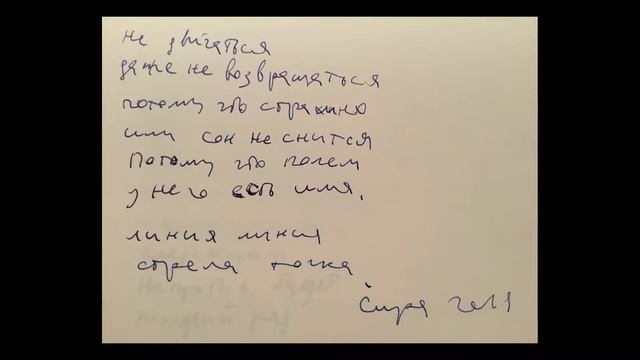 не двигаться
даже не возвращаться
потому что страшно
или сон не снится
потому что
у него есть имя.
линия линия
стрела точка